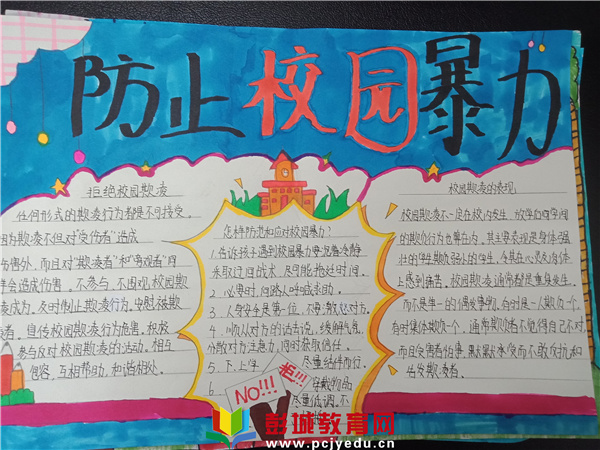 防止校园暴力
拒绝校园欺凌
任何形式的欺凌行为都是不可接受。
因为欺凌不但对"受伤者"造成
伤害外,而且对"欺凌者"和"旁观者"同
样会造成伤害。不参与,不围观,校园欺
凌成为,及时制止欺凌行为。安慰被欺
凌者。宣传校园欺凌行为危害,积极
参与反对校园欺凌的活动。相互
包容,互相帮助,和谐相处。
怎样防范和应对校园暴力?
1.告诉孩子遇到校园暴力要沉着冷静
采取迂回战术,尽可能拖延时间。
2.必要时,向路人呼救求助。
3.人身安全是第一位,不要激怒对方。
4.顺从对方的话去说,缓解气氛
分散对方注意力,同时获取信任。
5、下、上学 尽量结伴而行。
6、 穿戴的品
尽量低调,不
NO!!!
拒!!!
校园欺凌的表现。
校园欺凌不一定在校内发生,放学后回学间
的欺负行为也算在内,其主要表现是身体强
壮的学生欺负弱小的学生,令其在心灵和身体
上感到痛苦。校园欺凌通常都是重复发生,
而不是单一的偶发事例,有时是一人欺负一个,
有时集体欺负一个,通常欺凌者不觉得自己不对,
而且受害者怕事,默默承受而不敢反抗和
告发欺凌者。
彭城教育网
www.pcjyedu.cn